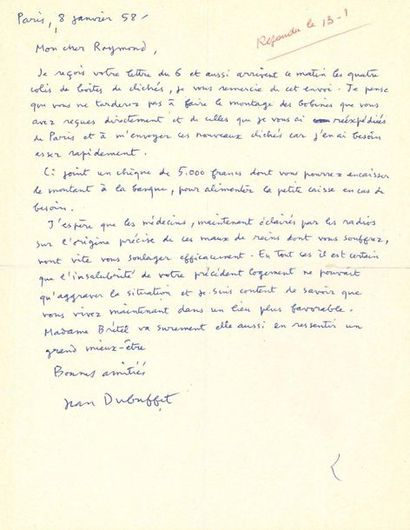 Paris, 8 janvier 58
Répondu le 13-1
Mon cher Raymond,
Je reçois votre lettre du 6 et aussi arrivent ce matin les quatre
colis de boîtes de clichés, je vous remercie de cet envoi. Je pense
que vous ne tarderez pas à faire le montage des bobines que vous
avez reçues directement et de celles que je vous ai réexpédiées
de Paris et à m'envoyer ces nouveaux clichés car j'en ai besoin
assez rapidement.
Ci joint un chèque de 5.000 francs dont vous pourrez encaisser
le montant à la banque, pour alimenter la petite caisse en cas de
besoin.
J'espère que les médecins, maintenant éclairés par les radios
sur l'origine précise de ces maux de reins dont vous souffrez,
vont vite vous soulager efficacement. En tout cas il est certain
que l'insalubrité de votre précédent logement ne pouvait
qu'aggraver la situation et je suis content de savoir que
vous vivez maintenant dans un lieu plus favorable.
Madame Brétel va surement elle aussi en ressentir un
grand mieux-être
Bonnes amitiés
Jean Dubuffet